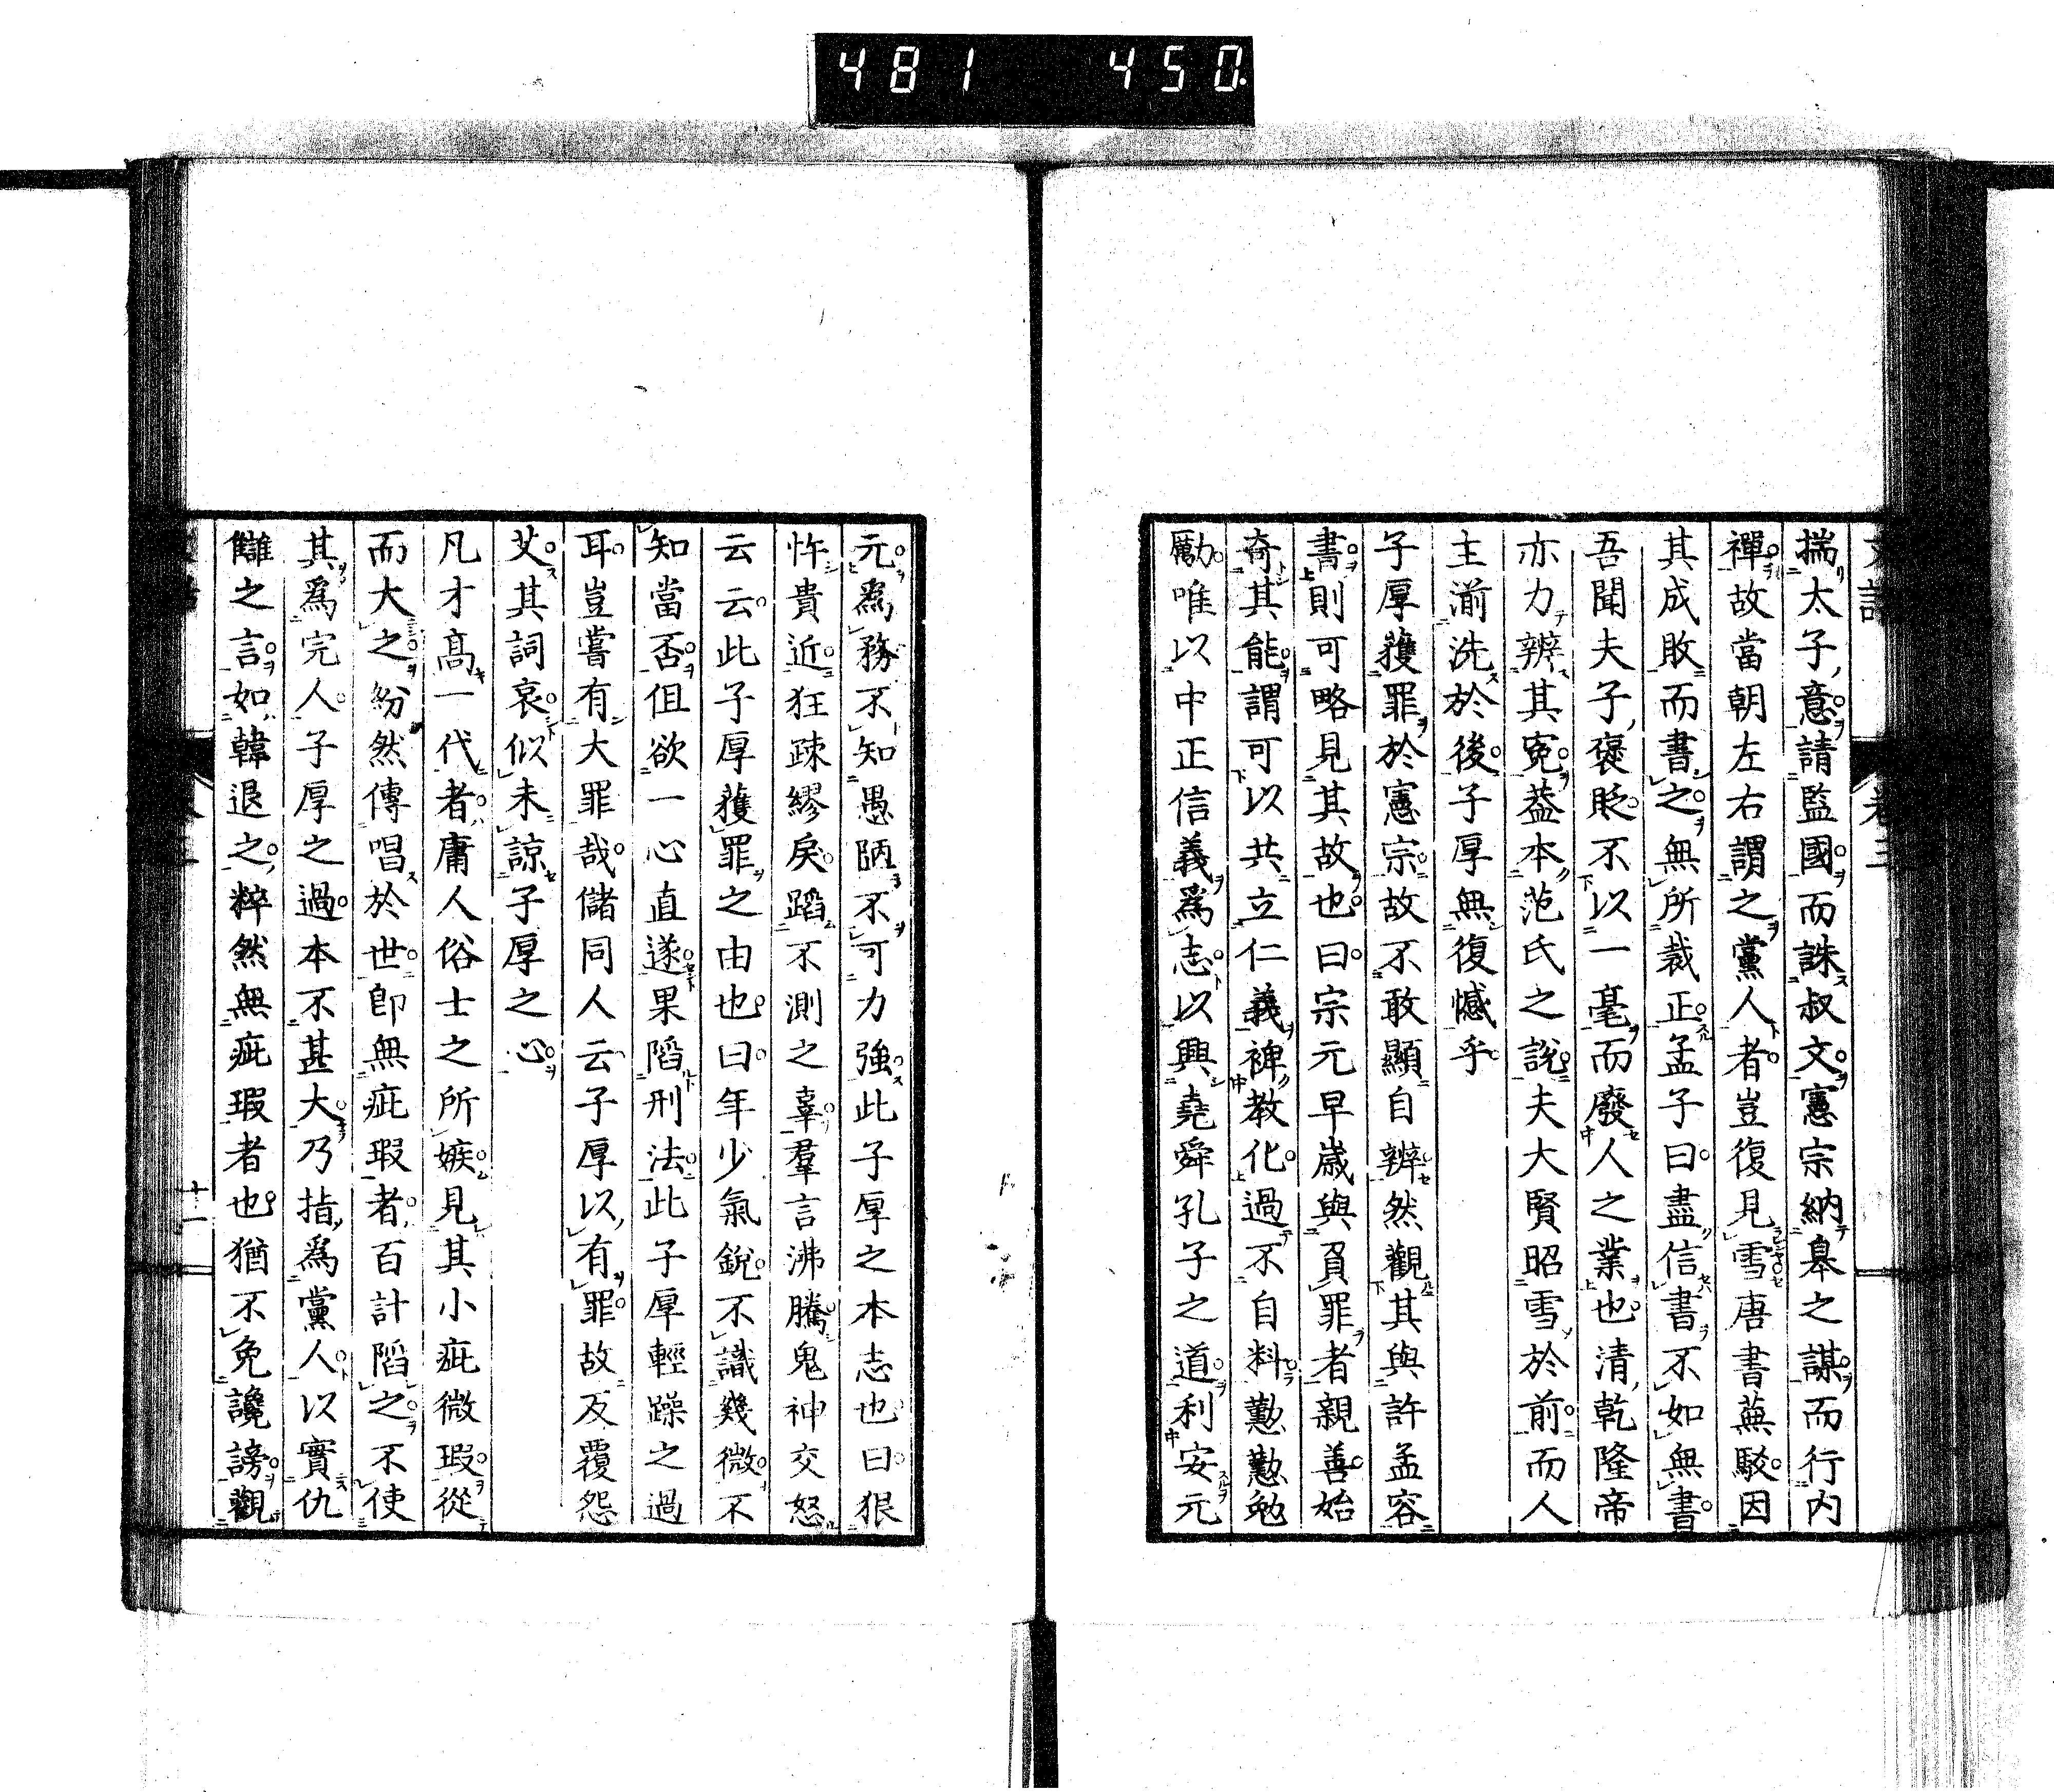 481 450
揣太子意請監國而誅叔文憲宗納皋之謀而行内
禪故當朝左右謂之黨人者豈復見雪唐書蕪駁因
其成敗而書之無所裁正孟子曰盡信書不如無書
吾聞夫子褒貶不以一毫而廢人之業也清乾隆帝
亦力辨其冤葢本范氏之說夫大賢昭雪於前而人
主湔洗於後子厚無復憾乎
子厚獲罪於憲宗故不敢顯自辨然觀其與許孟容
書則可略見其故也曰宗元早歲與負罪者親善始
奇其能謂可以共立仁義裨教化過不自料懃懃勉
勵唯以中正信義爲志以興堯舜孔子之道利安元
元爲務不知愚陋不可力強此子厚之本志也曰狠
忤貴近狂疎繆戾蹈不測之辜羣言沸騰鬼神交怒
云云此子厚獲罪之由也曰年少氣銳不識幾微不
知當否但欲一心直遂果陷刑法此子厚輕躁之過
耳豈嘗有大罪哉儲同人云子厚以有罪故反覆怨
艾其詞哀似未諒子厚之心
凡才高一代者庸人俗士之所嫉見其小疵微瑕從
而大之紛然傳唱於世卽無疵瑕者百計陷之不使
其爲完人子厚之過本不甚大乃指爲黨人以實仇
讎之言如韓退之粹然無疵瑕者也猶不免讒謗觀
十一